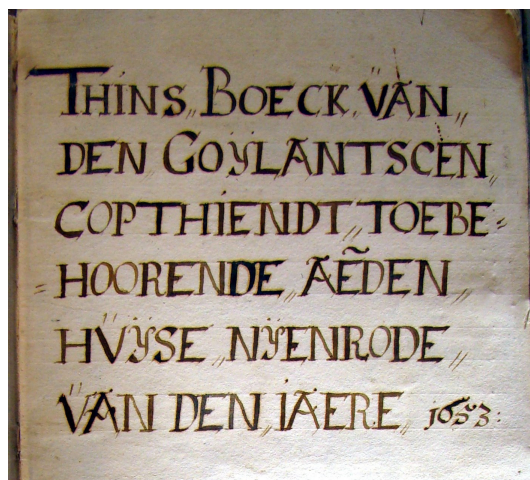 THINS BOECK VAN
DEN GOŸLANTSCEN
COPTHIENDT TOEBE-
HOORENDE AEÑDEN
HVŸSE NŸENRODE
VAN DEN IAERE 1653